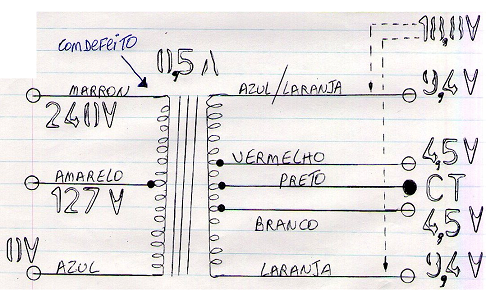 COM DEFEITO
0,5 A
MARRON
240V
AZUL/LARANJA
9,4V
VERMELHO
4,5V
AMARELO
127V
PRETO
CT
BRANCO
4,5V
0V
AZUL
LARANJA
9,4V